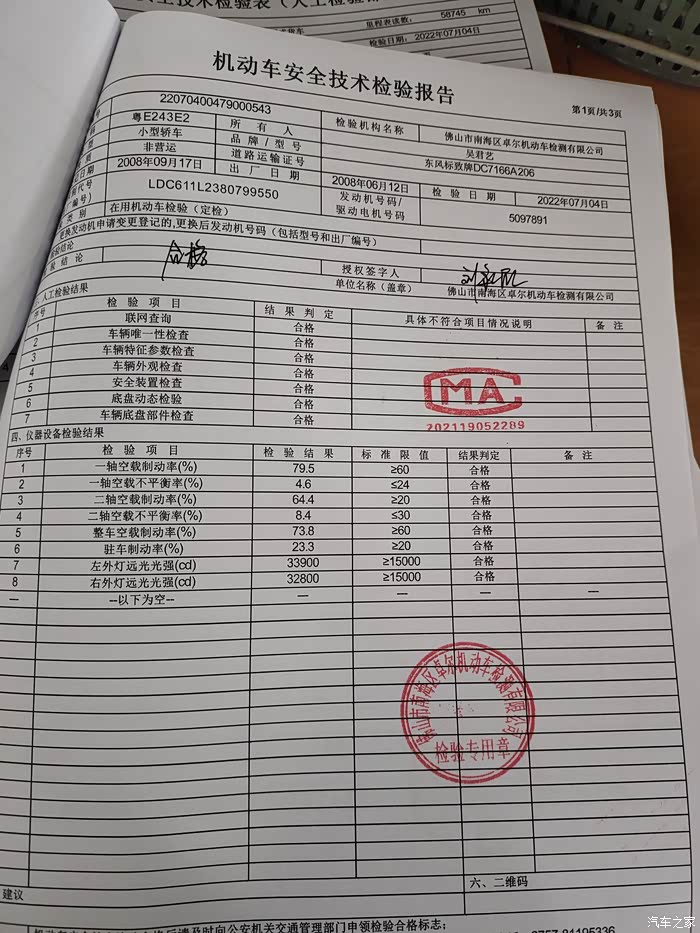 术检验表(人工检验
里程表读数: 58745 km
检验日期: 2022年07月04日
机动车安全技术检验报告
第1页/共3页
号 22070400479000543 检验机构名称 佛山市南海区卓尔机动车检测有限公司
粤E243E2 所有人 吴君艺
小型轿车 品牌/型号 东风标致牌DC7166A206
非营运 道路运输证号
日期 2008年09月17日 出厂日期 2008年06月12日 检验日期 2022年07月04日
LDC611L2380799550 发动机号码/驱动电机号码 5097891
类别 在用机动车检验(定检)
更换发动机申请变更登记的,更换后发动机号码(包括型号和出厂编号)
检验结论
结论 合格 授权签字人
单位名称(盖章) 佛山市南海区卓尔机动车检测有限公司
人工检验结果
序号 检验项目 结果判定 具体不符合项目情况说明 备注
1 联网查询 合格
2 车辆唯一性检查 合格
3 车辆特征参数检查 合格
4 车辆外观检查 合格
5 安全装置检查 合格
6 底盘动态检验 合格
7 车辆底盘部件检查 合格
MA
202119052289
四、仪器设备检验结果
序号 检验项目 检验结果 标准限值 结果判定 备注
1 一轴空载制动率(%) 79.5 ≥60 合格
2 一轴空载不平衡率(%) 4.6 ≤24 合格
3 二轴空载制动率(%) 64.4 ≥20 合格
4 二轴空载不平衡率(%) 8.4 ≤30 合格
5 整车空载制动率(%) 73.8 ≥60 合格
6 驻车制动率(%) 23.3 ≥20 合格
7 左外灯远光光强(cd) 33900 ≥15000 合格
8 右外灯远光光强(cd) 32800 ≥15000 合格
— --以下为空-- — — — —
佛山市南海区卓尔机动车检测有限公司
检验专用章
建议
六、二维码
后请及时向公安机关交通管理部门申领检验合格标志;
汽车之家